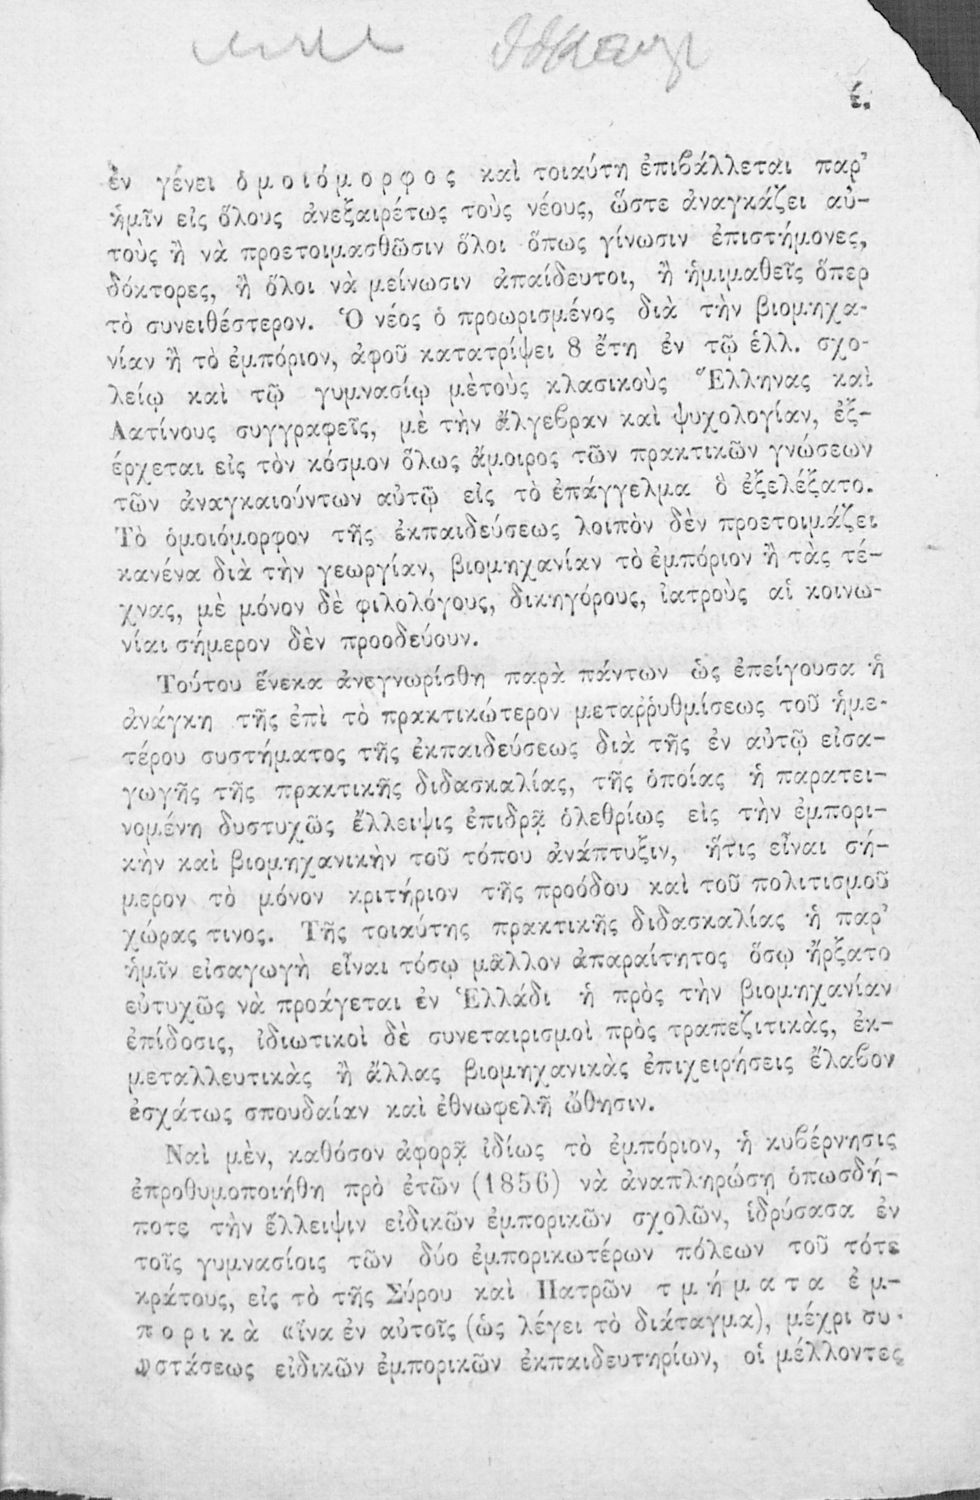 έ.
ἐν γένει ὁμοιόμορφος καὶ τοιαύτη ἐπιβάλλεται παρ’
ἡμῖν εἰς ὅλους ἀνεξαιρέτως τοὺς νέους, ὥστε ἀναγκάζει αὐ-
τοὺς ἢ νὰ προετοιμασθῶσιν ὅλοι ὅπως γίνωσιν ἐπιστήμονες,
δόκτορες, ἢ ὅλοι νὰ μείνωσιν ἀπαίδευτοι, ἢ ἡμιμαθεῖς ὅπερ
τὸ συνειθέστερον. Ὁ νέος ὁ προωρισμένος διὰ τὴν βιομηχα-
νίαν ἢ τὸ ἐμπόριον, ἀφοῦ κατατρίψει 8 ἔτη ἐν τῷ ἑλλ. σχο-
λείῳ καὶ τῷ γυμνασίῳ μὲτοὺς κλασικοὺς Ἕλληνας καὶ
Λατίνους συγγραφεῖς, μὲ τὴν ἄλγεβραν καὶ ψυχολογίαν, ἐξ-
έρχεται εἰς τὸν κόσμον ὅλως ἄμοιρος τῶν πρακτικῶν γνώσεων
τῶν ἀναγκαιούντων αὐτῷ εἰς τὸ ἐπάγγελμα ὃ ἐξελέξατο.
Τὸ ὁμοιόμορφον τῆς ἐκπαιδεύσεως λοιπὸν δὲν προετοιμάζει
κανένα διὰ τὴν γεωργίαν, βιομηχανίαν τὸ ἐμπόριον ἢ τὰς τέ-
χνας, μὲ μόνον δὲ φιλολόγους, δικηγόρους, ἰατροὺς αἱ κοινω-
νίαι σήμερον δὲν προοδεύουν.
Τούτου ἕνεκα ἀνεγνωρίσθη παρὰ πάντων ὡς ἐπείγουσα ἡ
ἀνάγκη τῆς ἐπὶ τὸ πρακτικώτερον μεταῤῥυθμίσεως τοῦ ἡμε-
τέρου συστήματος τῆς ἐκπαιδεύσεως διὰ τῆς ἐν αὐτῷ εἰσα-
γωγῆς τῆς πρακτικῆς διδασκαλίας, τῆς ὁποίας ἡ παρατει-
νομένη δυστυχῶς ἔλλειψις ἐπιδρᾷ ὀλεθρίως εἰς τὴν ἐμπορι-
κὴν καὶ βιομηχανικὴν τοῦ τόπου ἀνάπτυξιν, ἥτις εἶναι σή-
μερον τὸ μόνον κριτήριον τῆς προόδου καὶ τοῦ πολιτισμοῦ
χώρας τινος. Τῆς τοιαύτης πρακτικῆς διδασκαλίας ἡ παρ’
ἡμῖν εἰσαγωγὴ εἶναι τόσῳ μᾶλλον ἀπαραίτητος ὅσῳ ἤρξατο
εὐτυχῶς νὰ προάγεται ἐν Ἑλλάδι ἡ πρὸς τὴν βιομηχανίαν
ἐπίδοσις, ἰδιωτικοὶ δὲ συνεταιρισμοὶ πρὸς τραπεζιτικὰς, ἐκ-
μεταλλευτικὰς ἢ ἄλλας βιομηχανικὰς ἐπιχειρήσεις ἔλαβον
ἐσχάτως σπουδαίαν καὶ ἐθνωφελῆ ὤθησιν.
Ναὶ μὲν, καθόσον ἀφορᾷ ἰδίως τὸ ἐμπόριον, ἡ κυβέρνησις
ἐπροθυμοποιήθη πρὸ ἐτῶν (1856) νὰ ἀναπληρώσῃ ὁπωσδή-
ποτε τὴν ἔλλειψιν εἰδικῶν ἐμπορικῶν σχολῶν, ἱδρύσασα ἐν
τοῖς γυμνασίοις τῶν δύο ἐμπορικωτέρων πόλεων τοῦ τότε
κράτους, εἰς τὸ τῆς Σύρου καὶ Πατρῶν τμήματα ἐμ-
πορικὰ «ἵνα ἐν αὐτοῖς (ὡς λέγει τὸ διάταγμα), μέχρι συ-
στάσεως εἰδικῶν ἐμπορικῶν ἐκπαιδευτηρίων, οἱ μέλλοντες